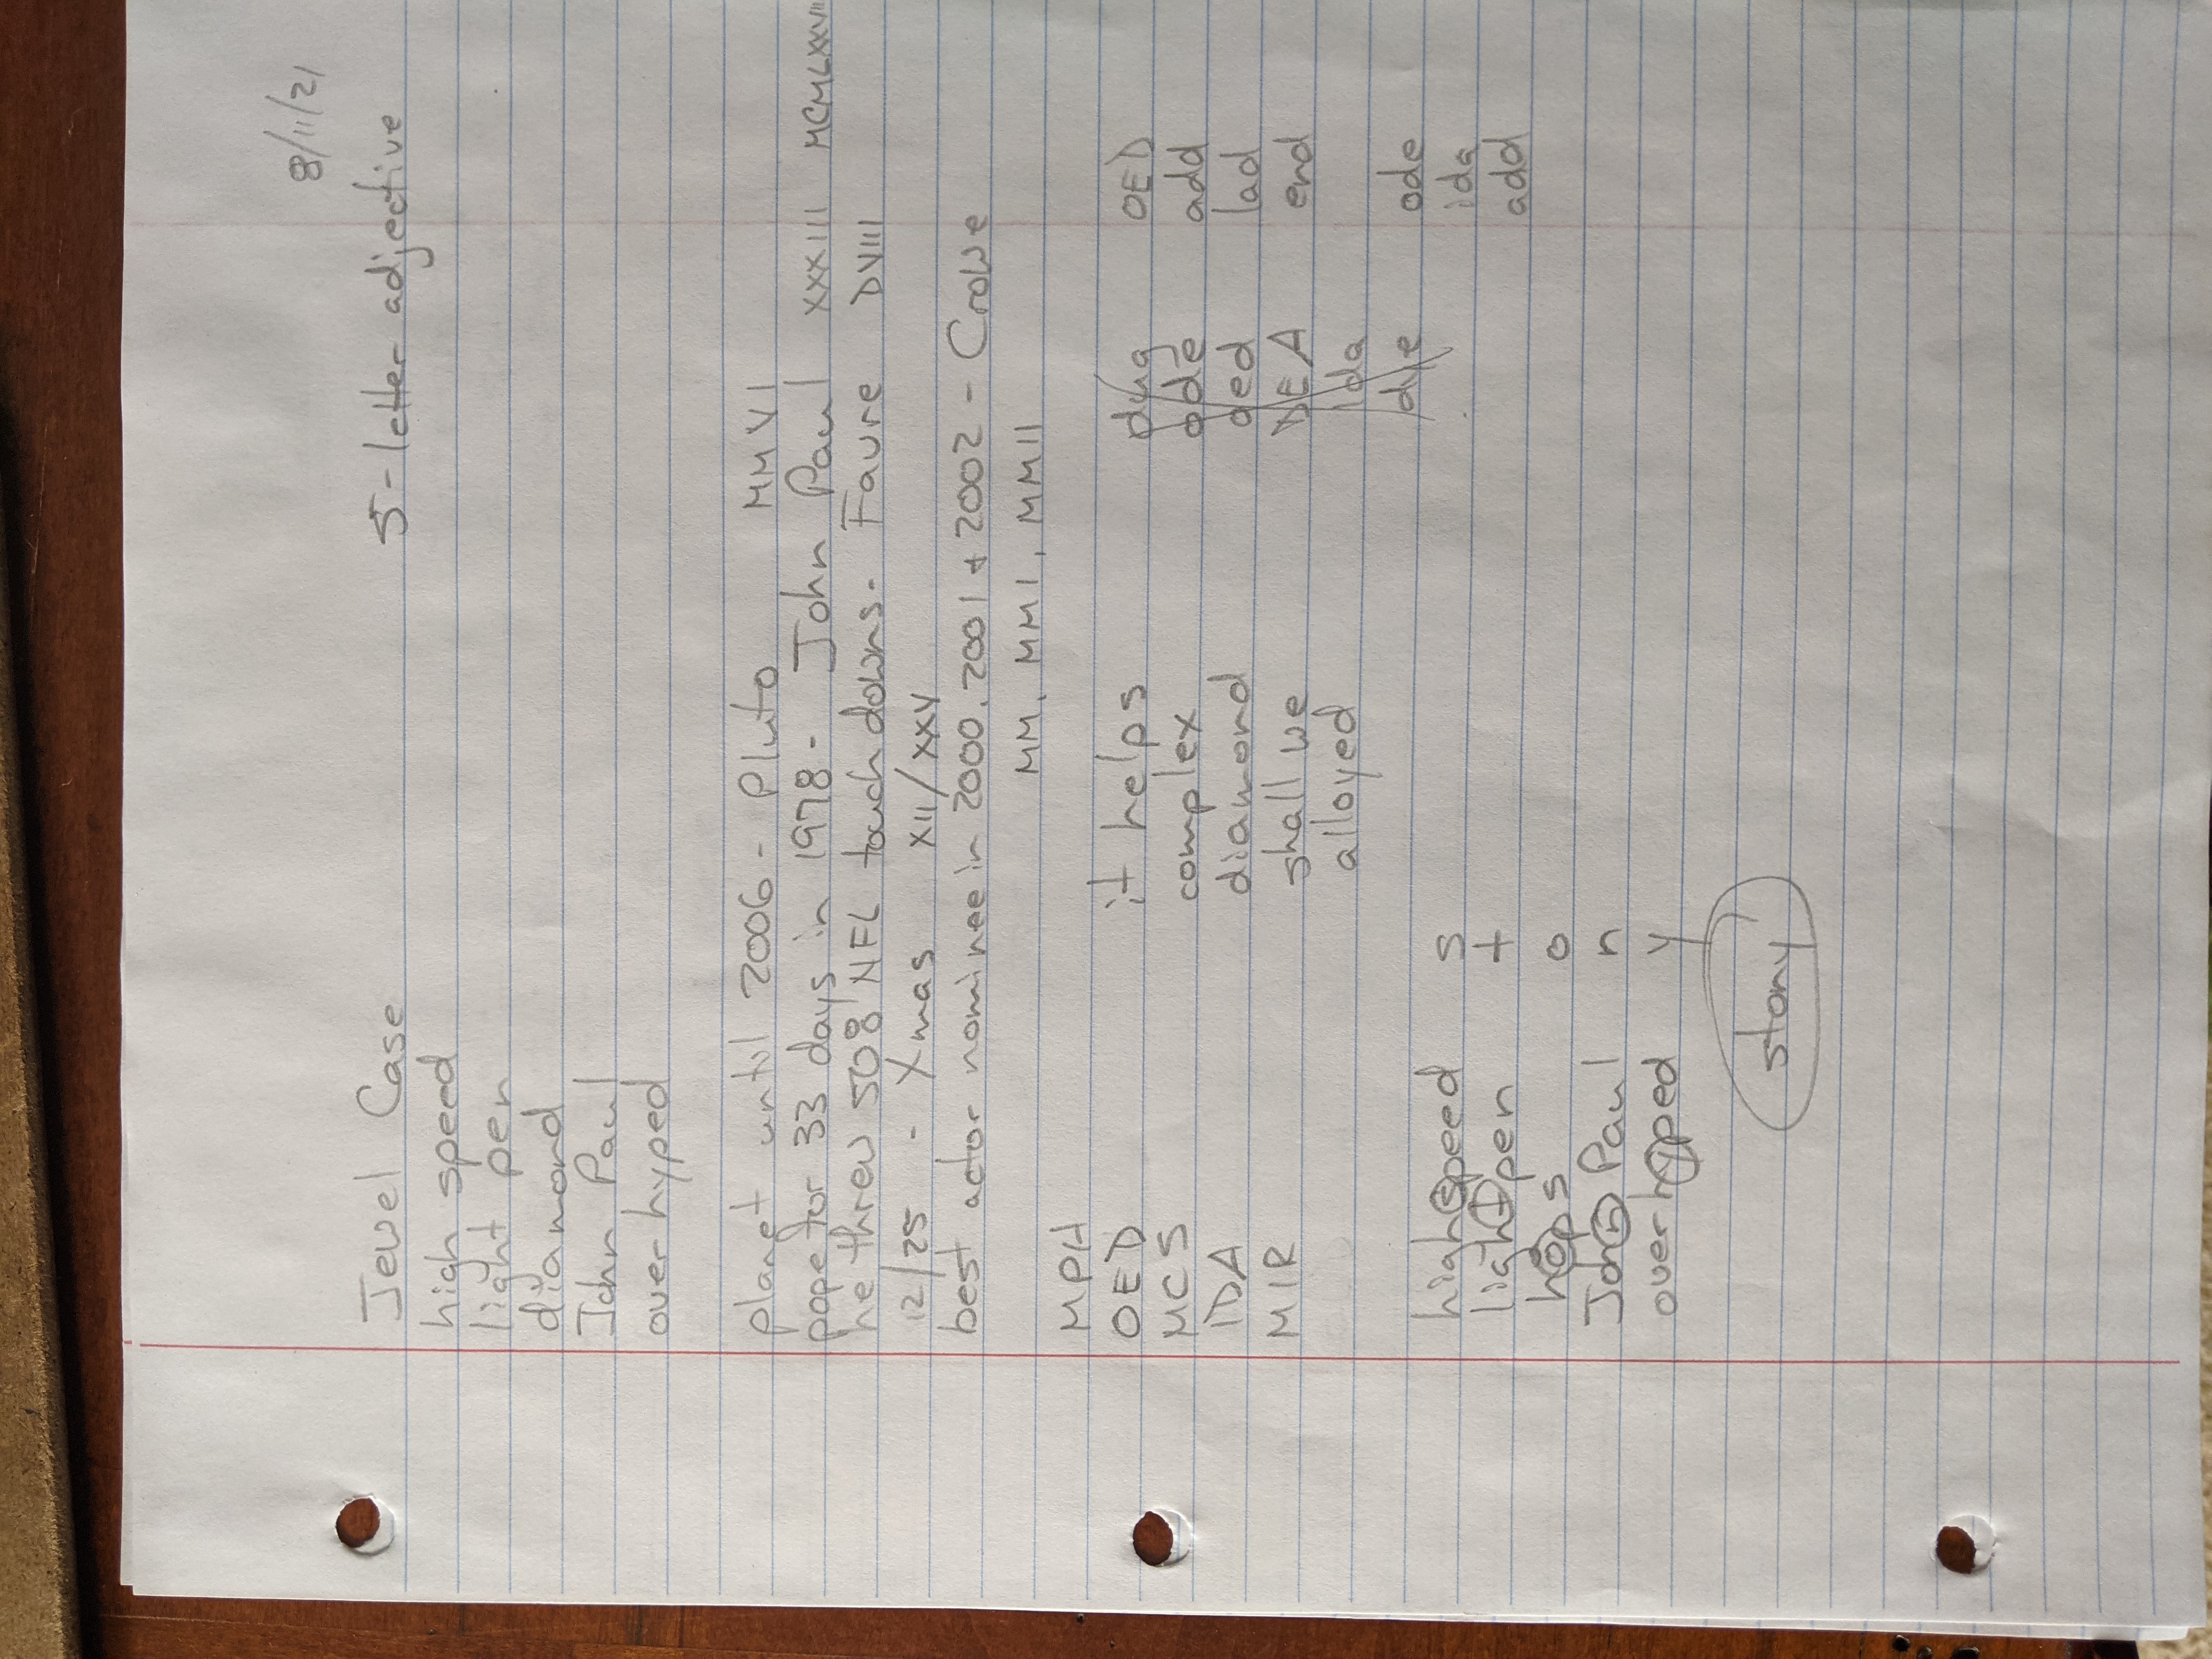 8/11/21
Jewel Case 5-letter adjective
high speed
light pen
diamond
John Paul
over hyped
planet until 2006 - Pluto MMVI
pope for 33 days in 1978 - John Paul XXXIII MCMLXXVIII
he threw 508 NFL touchdowns - Favre DVIII
12/25 - Xmas XII/XXV
best actor nominee in 2000, 2001 + 2002 - Crowe
MM, MMI, MMII
MPH
OED it helps dug OED
MCS complex ode add
IDA diamond ged lad
MIR shall we DEA end
alloyed Ida
die ode
high speed s ida
light pen t add
hops o
John Paul n
over hyped y
stony